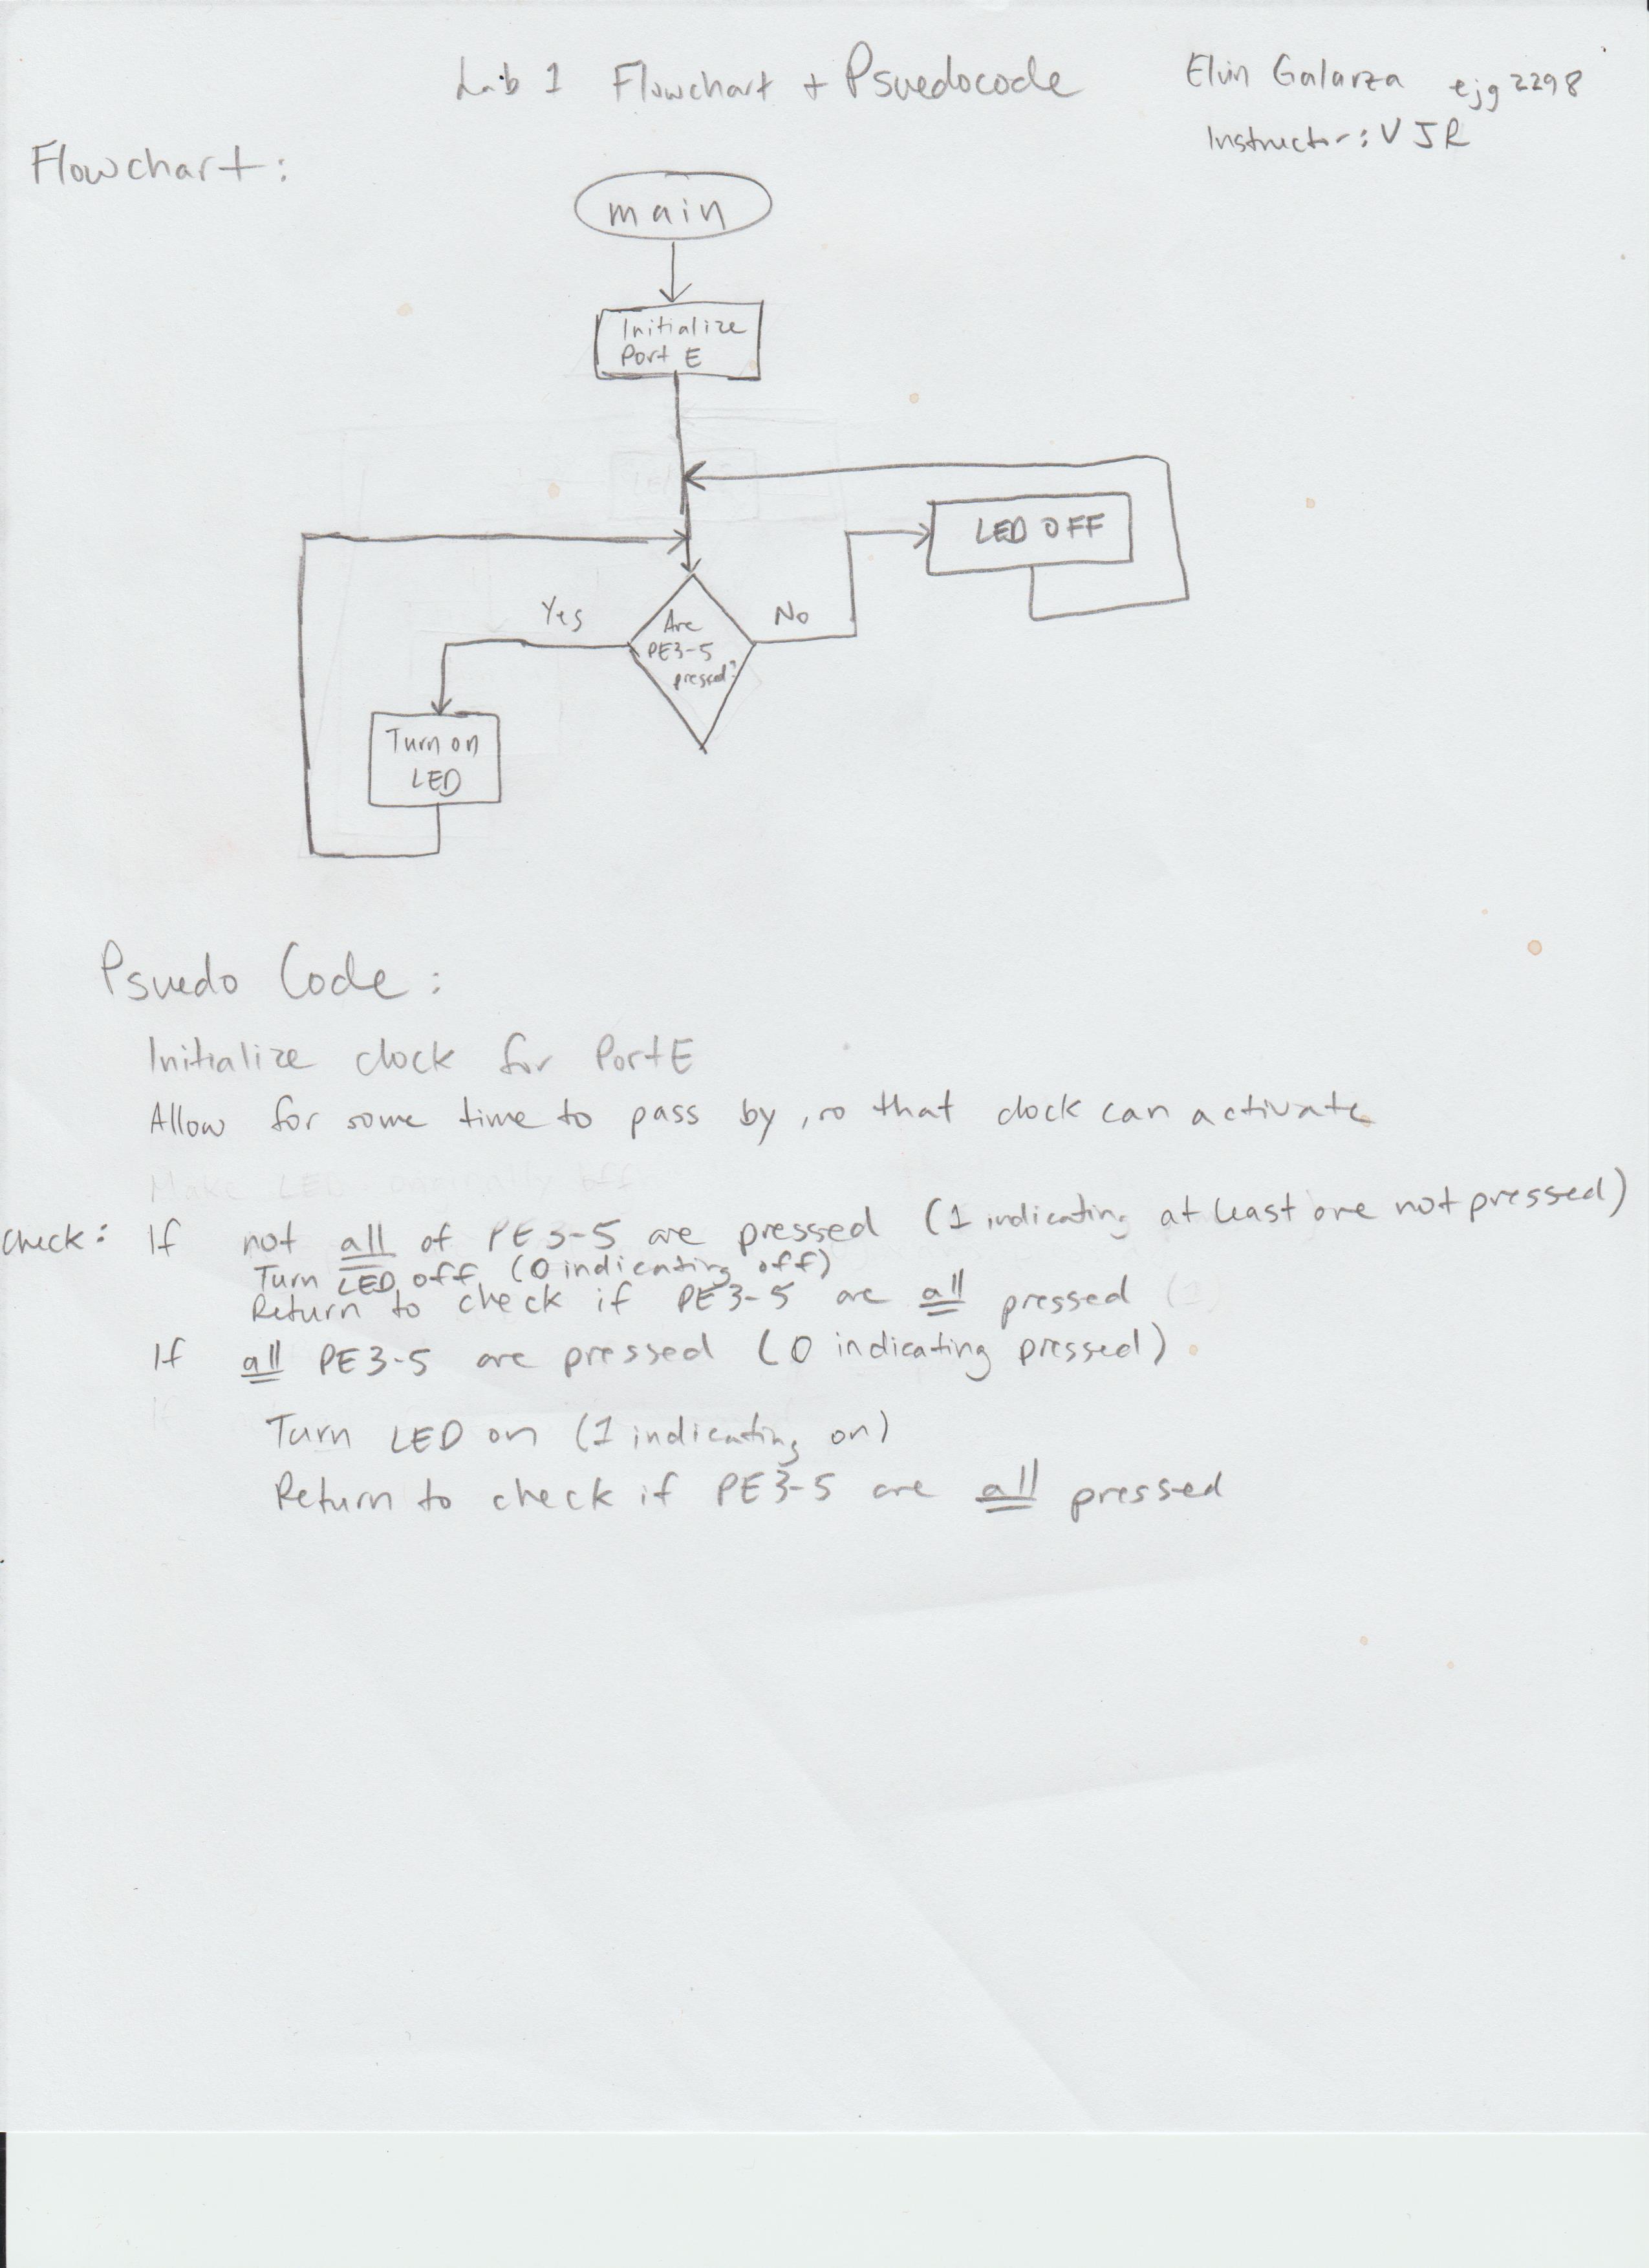 Lab 1 Flowchart + Psuedocode
Elvin Galarza ejg2298
Instructor: VJR
Flowchart:
main
Initialize
Port E
LED OFF
Yes
No
Are
PE3-5
pressed?
Turn on
LED
Psuedo Code:
Initialize clock for PortE
Allow for some time to pass by, so that clock can activate
Check: If not all of PE3-5 are pressed (1 indicating at least one not pressed)
Turn LED off (0 indicating off)
Return to check if PE3-5 are all pressed
If all PE3-5 are pressed (0 indicating pressed)
Turn LED on (1 indicating on)
Return to check if PE3-5 are all pressed